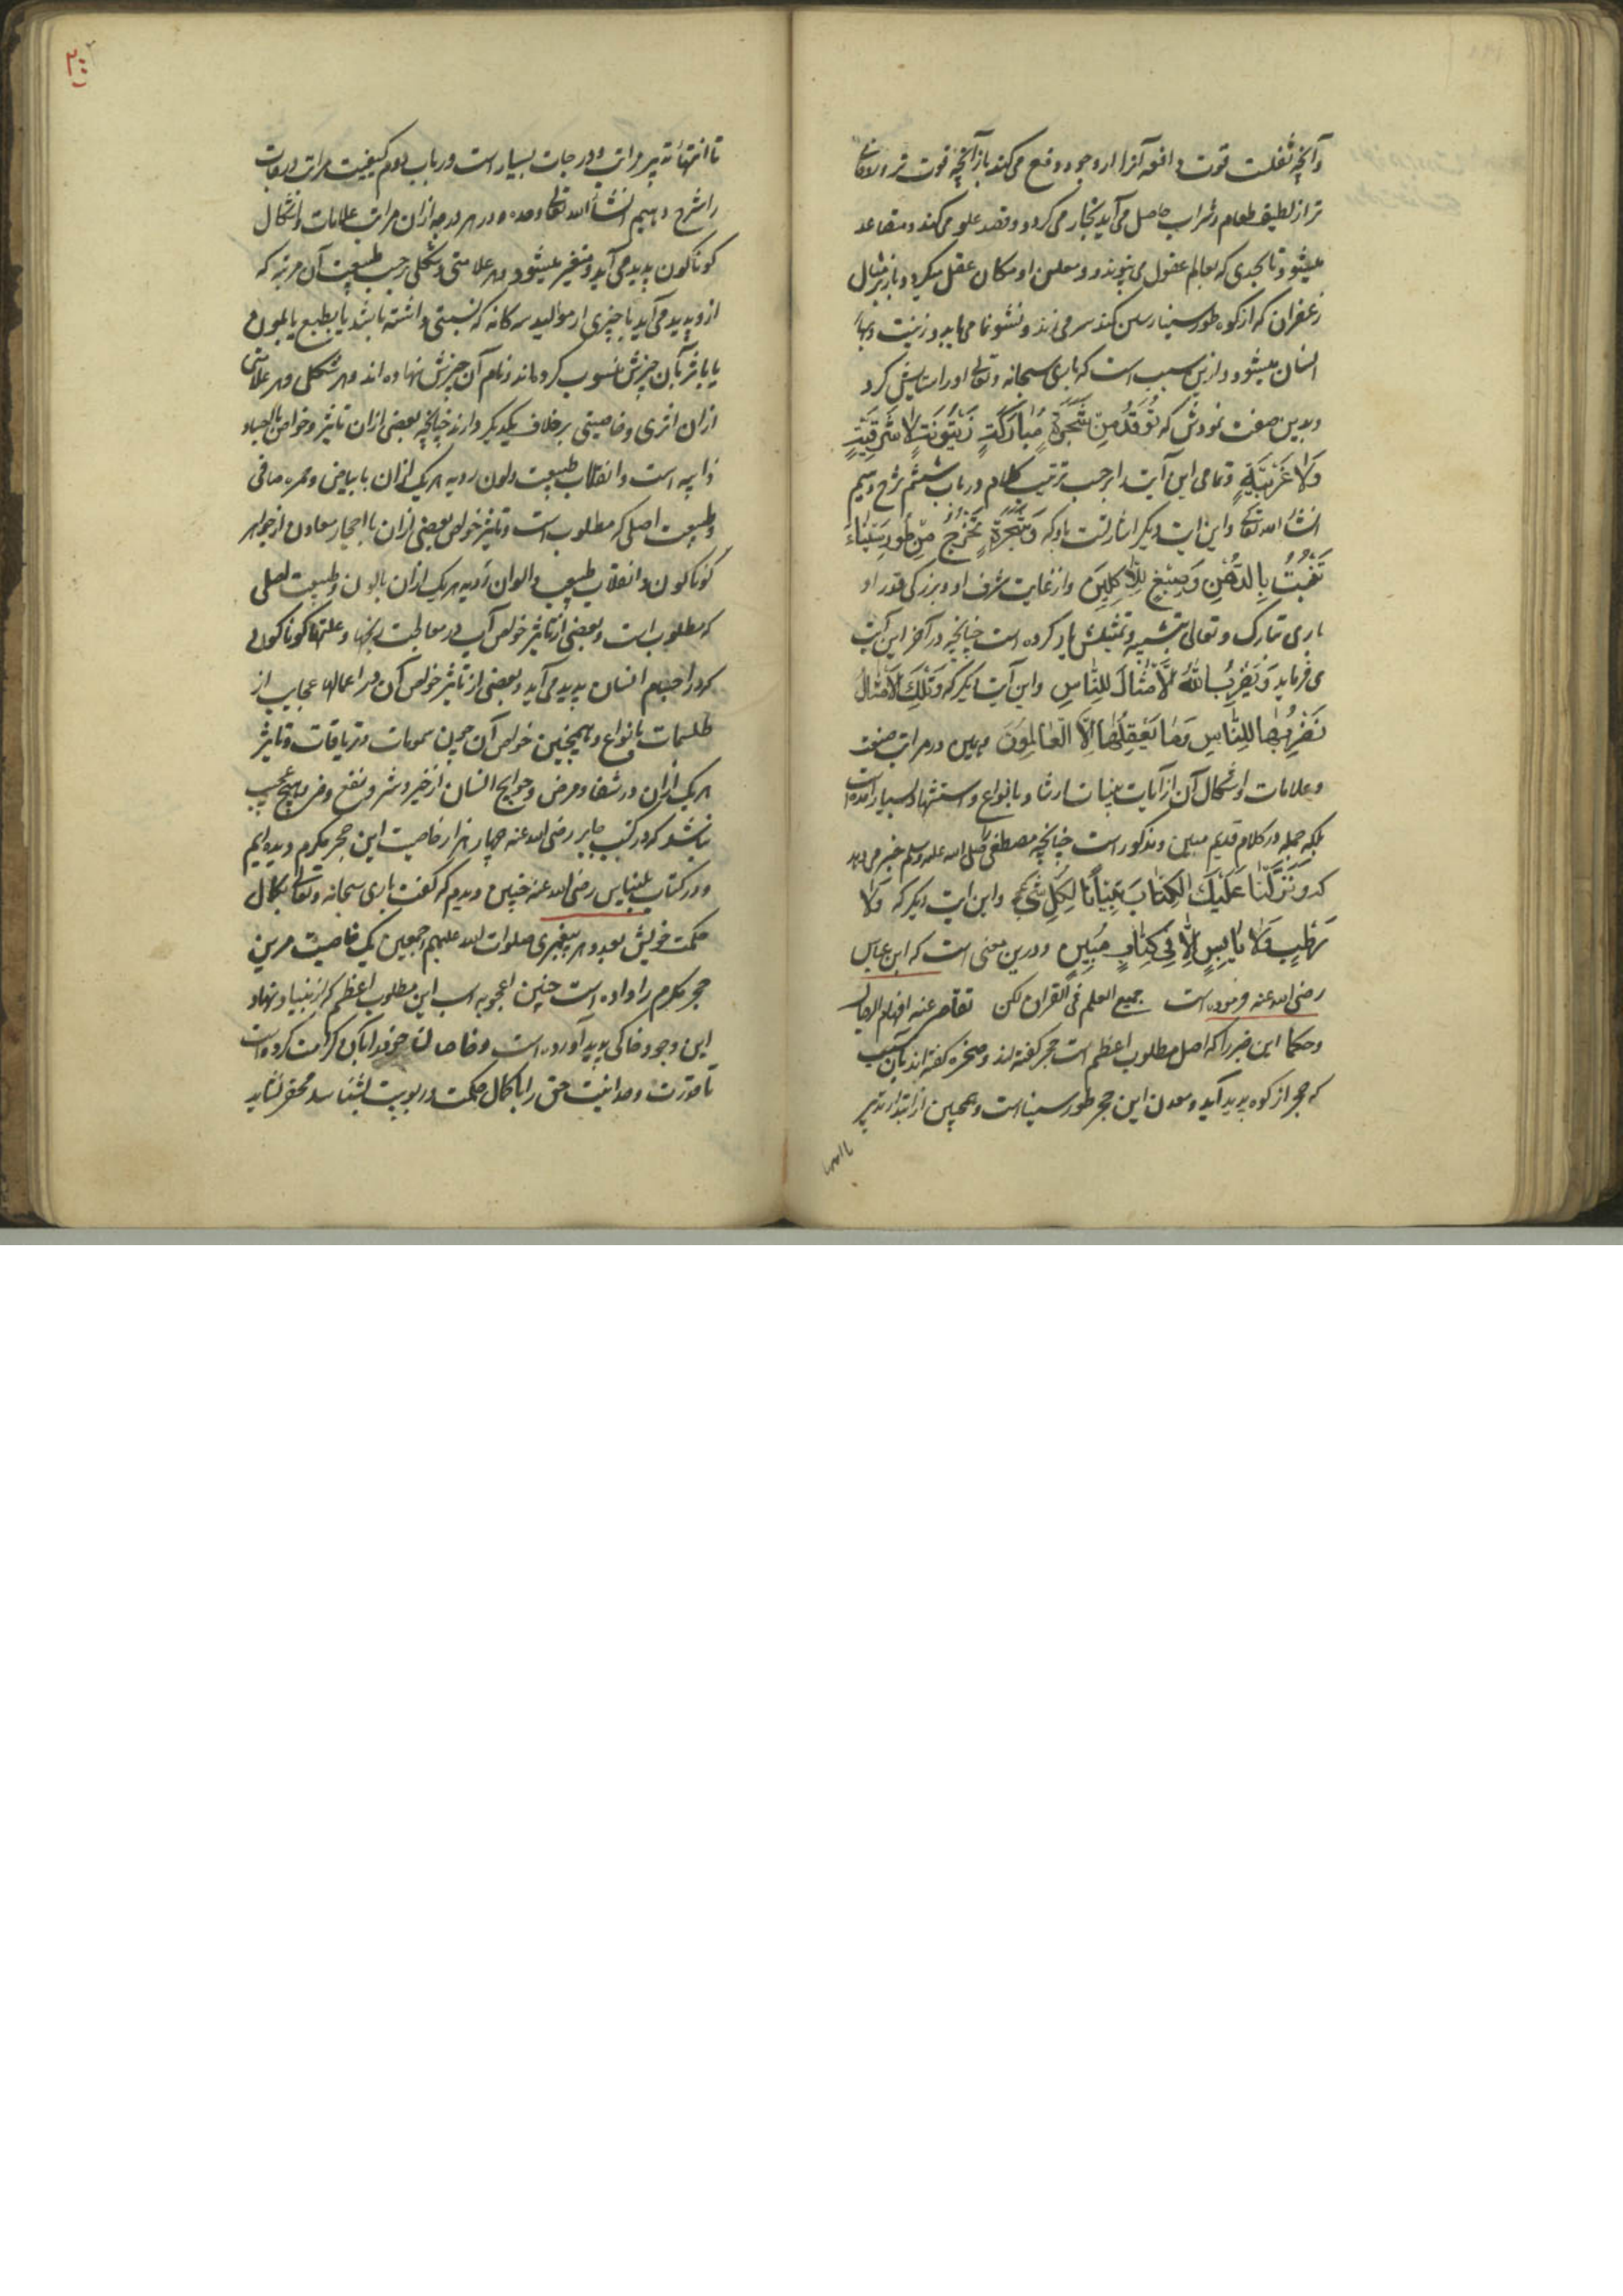 وآنچه ثفلست قوت دافعه آنرا از وجود دفع می کند باز آنچه قوت تر و
تر از لطیف طعام و شراب حاصل می آید بخار می کردد و قصد علو می کند و متصاعد
میشود تا بحدی که بعالم عقول می پیوندد و معلمن او مکان عقل میکیرد و باز بر مثال
زعفران که از کوه طور سینا رستن کند سر می زند و نشو نما می یابد و زینت و بهاء
انسان میشود و ازین سبب است که باری سبحانه و تعالی او را ستایش کرد
و بدین صفت نمودش که تُوقَدُ مِنْ شَجَرَةٍ مُبَارَكَةٍ زَيْتُونَةٍ لَا شَرْقِيَّةٍ
وَلَا غَرْبِيَّةٍ و تمامی این آیت را بر حسب ترتیب کلام در باب ششم شرح دهیم
انشاء الله تعالی و این آیت دیکر اشارتست بدو که وَشَجَرَةٍ تَخْرُجُ مِنْ طُورِ سَيْنَاءَ
تَنْبُتُ بِالدُّهْنِ وَصِبْغٍ لِلْآكِلِينَ و از غایت شرف او و بزرکی قدر او
باری تبارک و تعالی بتشبیه و تمثیلش یاد کرده است چنانچه در آخر این آیت
می فرماید وَيَضْرِبُ اللَّهُ الْأَمْثَالَ لِلنَّاسِ و این آیت دیکر که وَتِلْكَ الْأَمْثَالُ
نَضْرِبُهَا لِلنَّاسِ وَمَا يَعْقِلُهَا إِلَّا الْعَالِمُونَ و همین در مراتب صنعت
و علامات و اشکال آن از آیات بینات ارشاد بانواع و استشهاد بسیار آمده است
بلکه جمله در کلام قدیم مبین و مذکور است چنانچه مصطفی را صلی الله علیه و سلم خبر می دهد
که وَنَزَّلْنَا عَلَيْكَ الْكِتَابَ تِبْيَانًا لِكُلِّ شَيْءٍ و این آیت دیکر که وَلَا
رَطْبٍ وَلَا يَابِسٍ إِلَّا فِي كِتَابٍ مُبِينٍ و درین معنی است که ابن عباس
رضی الله عنه فرموده است جمیع العلم فی القران لکن تقاصر عنه افهام الرجال
و حکما این خبر را که اصل مطلوب اعظم است حجر کفته اند و صخره کفته اند بآن سبب
که حجر از کوه پدید آید و معدن این حجر طور سینا است و همچنین از ابتدا تدبیر
تا انتها
تا انتهاء تدبیر مراتب و درجات بسیار است و در باب دوم کیفیت مراتب و درجات
را شرح دهیم انشاء الله تعالی وحده و در هر درجه از ان مراتب علامات و اشکال
کوناکون پدید می آید و متغیر میشود و هر علامتی و شکلی بر حسب طبیعت آن مرتبه که
ازو پدید می آید با چیزی از موالید سه کانه که نسبتی داشته باشد یا بطبع یا بلون
یا باثر بآن چیزش منسوب کرده اند و نام آن چیزش نهاده اند و هر شکلی و هر علامتی
از ان اثری و خاصیتی بر خلاف یکدیکر دارند چنانچه بعضی از ان تاثیر و خواص باجساد
ذایبه است و انقلاب طبیعت و لون ردیه هریک از ان با بیاض و حمره صافی
و طبیعت اصلی که مطلوب است و تاثیر خواص بعضی از ان با احجار معادن از جواهر
کوناکون و انقلاب طبیعت و الوان ردیه هریک از ان بالون و طبیعت اصلی
که مطلوب است و بعضی از تاثیر خواص آن در معالجت رنجها و علتها کوناکون
که در اجسام انسان پدید می آید و بعضی از تاثیر خواص آن در اعمالهاء عجایب از
طلسمات بانواع و همچنین خواص آن چون سمومات و تریاقات و تاثیر
هریک از ان در شفا و مرض و حوایج انسان از خیر و شر و نفع و ضر و هیچ عجب
نباشد که در کتب جابر رضی الله عنه چهار هزار خاصیت این حجر مکرم دیده ایم
و در کتاب بلیناس رضی الله عنه چنین دیدم که کفت باری سبحانه و تعالی بکمال
حکمت خویش بعدد هر پیغمبری صلوات الله علیهم اجمعین یک خاصیت مرین
حجر مکرم را داده است چنین اعجوبه است این مطلوب اعظم که از بنیاد نهاد
این وجود خاکی پدید آورده است و خاصان خود را بآن کرامت کرده است
تا قدرت وحدانیت حق را با کمال حکمت و ربوبیت بشناسد و محقر نشاید